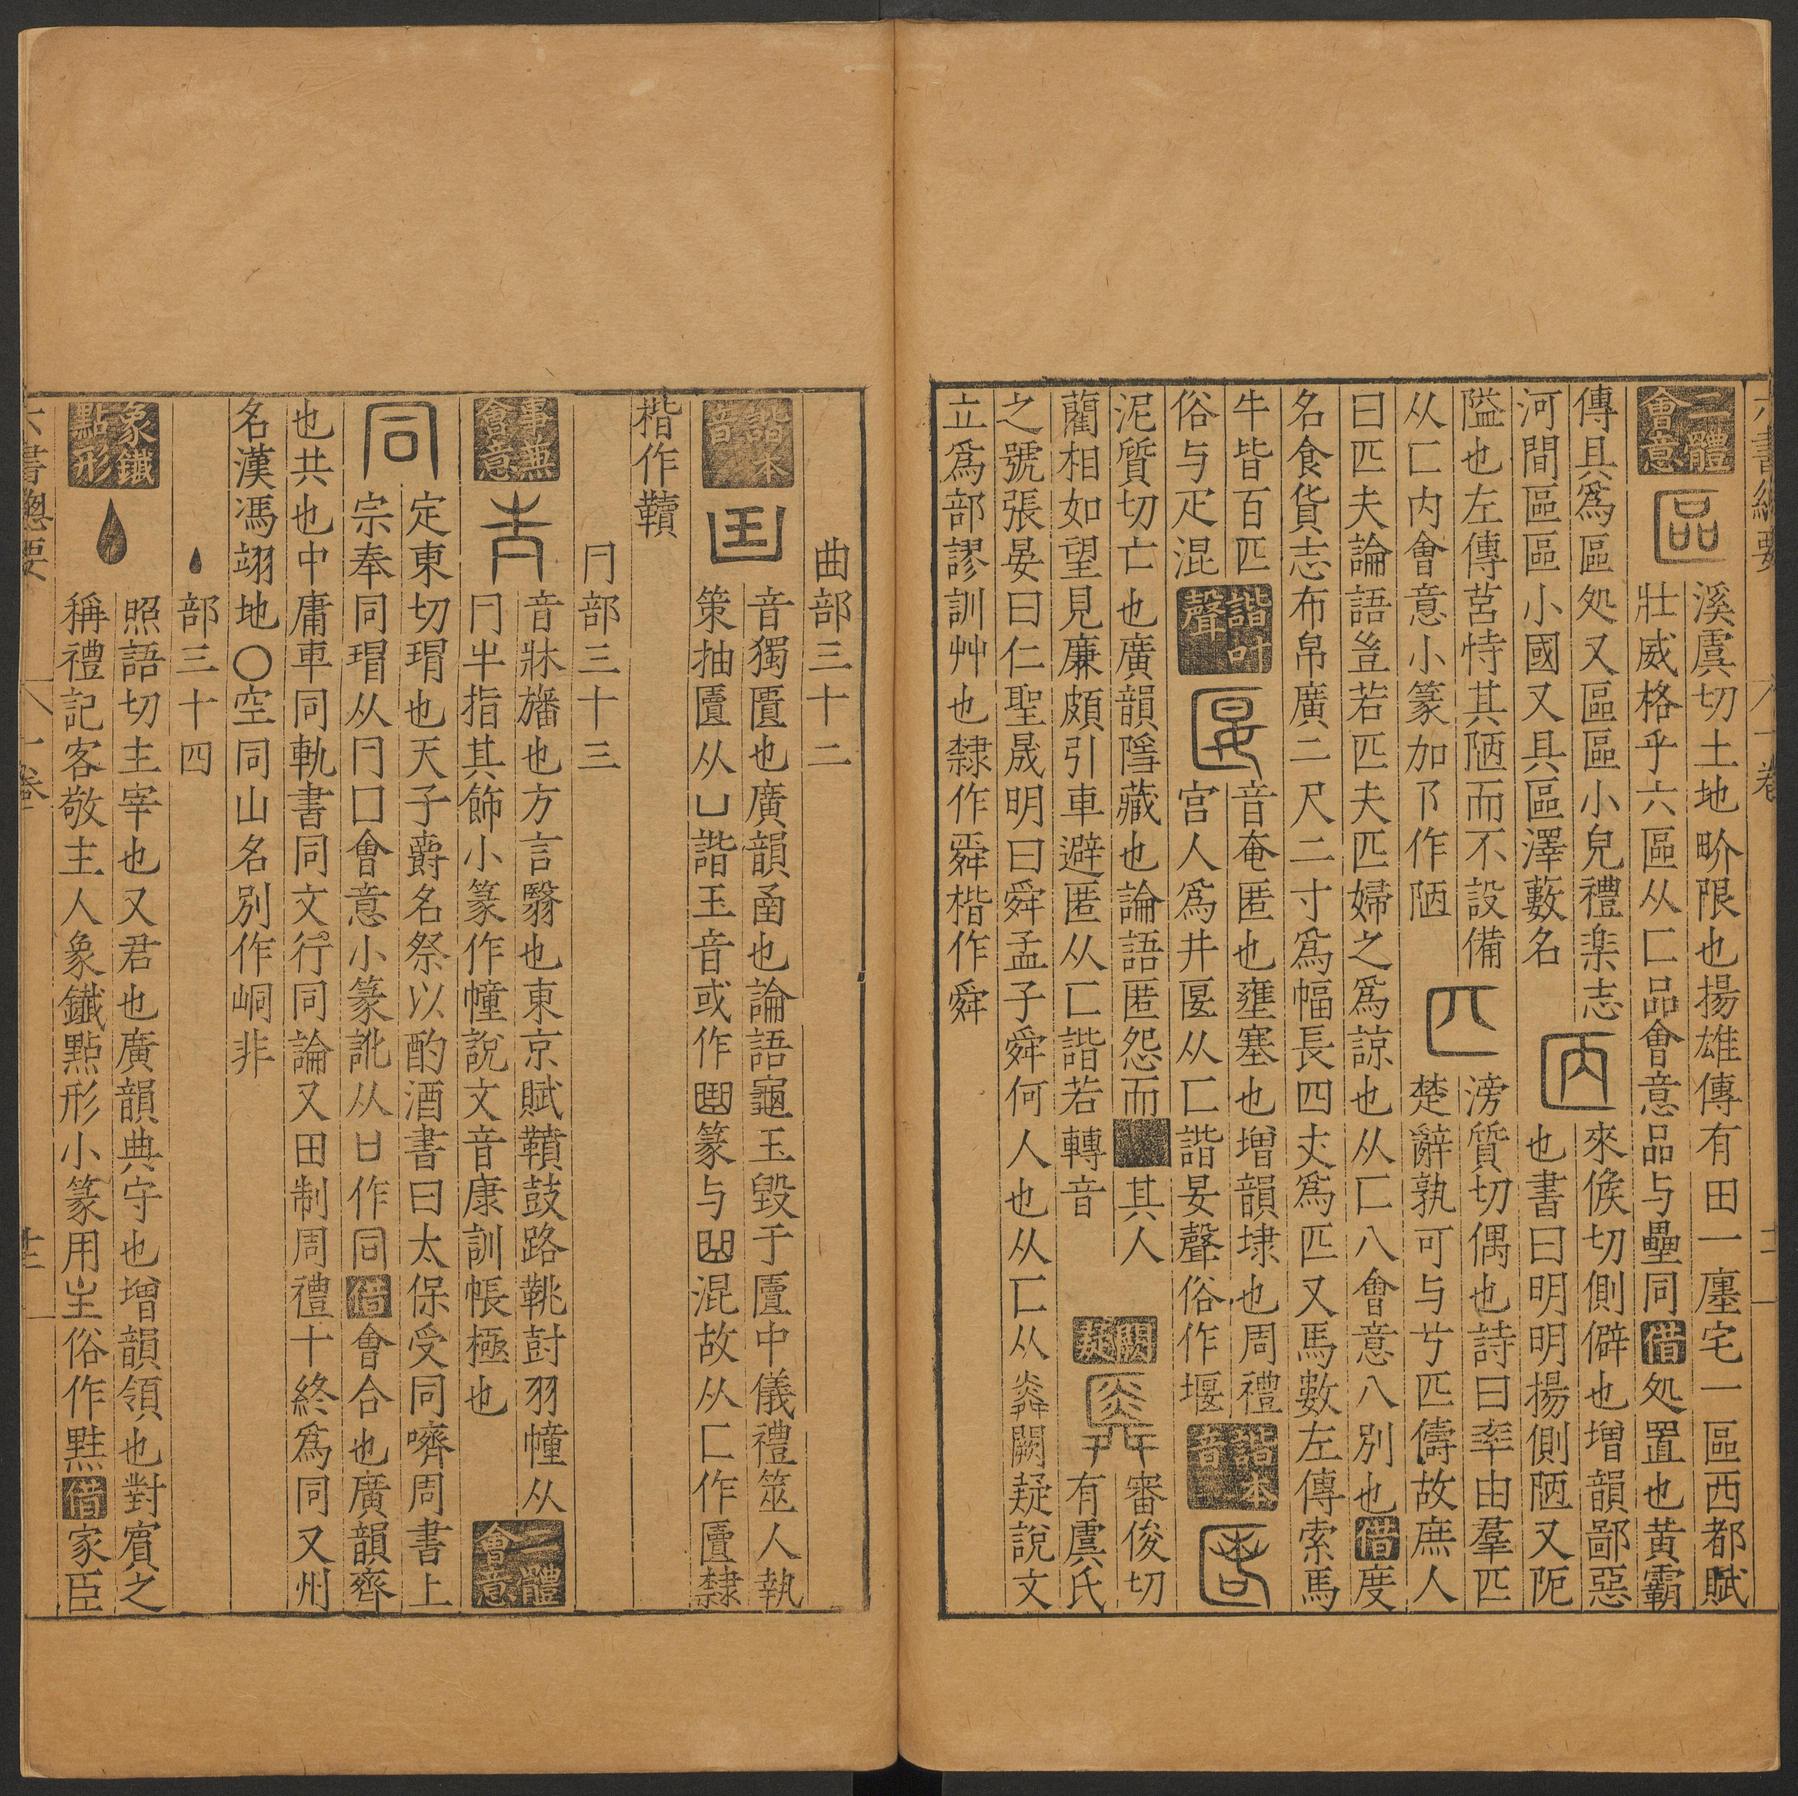 六書總要 卷一
二體會意
溪虞切土地畍限也揚雄傳有田一㕓宅一區西都賦
壯威格乎六區从匚品會意品与壘同借処置也黄霸
傳具爲區処又區區小皃禮楽志
來候切側僻也增韻鄙惡
河間區區小國又具區澤藪名
也書曰明明揚側陋又阨
隘也左傳莒恃其陋而不設備
滂質切偶也詩曰率由羣匹
从匚内會意小篆加阝作陋
楚辭孰可与兮匹儔故庶人
曰匹夫論語豈若匹夫匹婦之爲諒也从匚八會意八別也借度
名食貨志布帛廣二尺二寸爲幅長四丈爲匹又馬數左傳索馬
牛皆百匹
諧叶聲
音奄匿也壅塞也增韻埭也周禮
俗与疋混
宫人爲井匽从匚諧妟聲俗作堰
諧本音
泥質切亡也廣韻隂藏也論語匿怨而
其人
審俊切
藺相如望見廉頗引車避匿从匚諧若轉音
闕疑
有虞氏
之號張晏曰仁聖晟明曰舜孟子舜何人也从匚从
闕疑說文
立爲部謬訓艸也隸作舜楷作舜
曲部三十二
諧本音
音獨匱也廣韻函也論語龜玉毀于匵中儀禮筮人執
策抽匵从凵諧玉音或作
篆与
混故从匚作匵隸
楷作韇
冂部三十三
事兼會意
音牀旛也方言翳也東京賦鞼鼓路鞉尌羽幢从
冂屮指其飾小篆作幢說文音康訓帳極也
二體會意
同
定東切瑁也天子爵名祭以酌酒書曰太保受同嚌周書上
宗奉同瑁从冂口會意小篆訛从㠯作同借會合也廣韻齊
也共也中庸車同軌書同文行同論又田制周禮十終爲同又州
名漢馮翊地○空同山名別作峒非
部三十四
象鐵點形
照語切主宰也又君也廣韻典守也增韻領也對賓之
稱禮記客敬主人象鐵點形小篆用㞷俗作㸃借家臣
六書總要 卷一